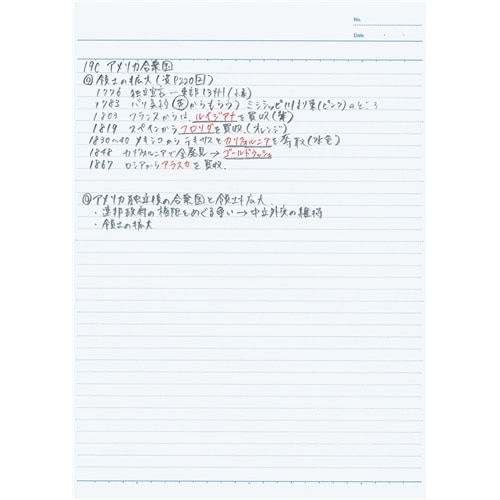 No.
Date
19C アメリカ合衆国
◎領土の拡大(資P220図)
1776 独立宣言…東部13州
1783 パリ条約(英からもらう) ミシシッピ川より東(ピンク)のところ
1803 フランスからルイジアナを買収
1819 スペインからフロリダを買収(オレンジ)
1830~40 メキシコからテキサスとカリフォルニアを奪取(水色)
1848 カリフォルニアで金発見→ゴールドラッシュ
1867 ロシアからアラスカを買収
◎アメリカ独立後の合衆国と領土拡大
・連邦政府の権限をめぐる争い→中立外交の維持
・領土の拡大